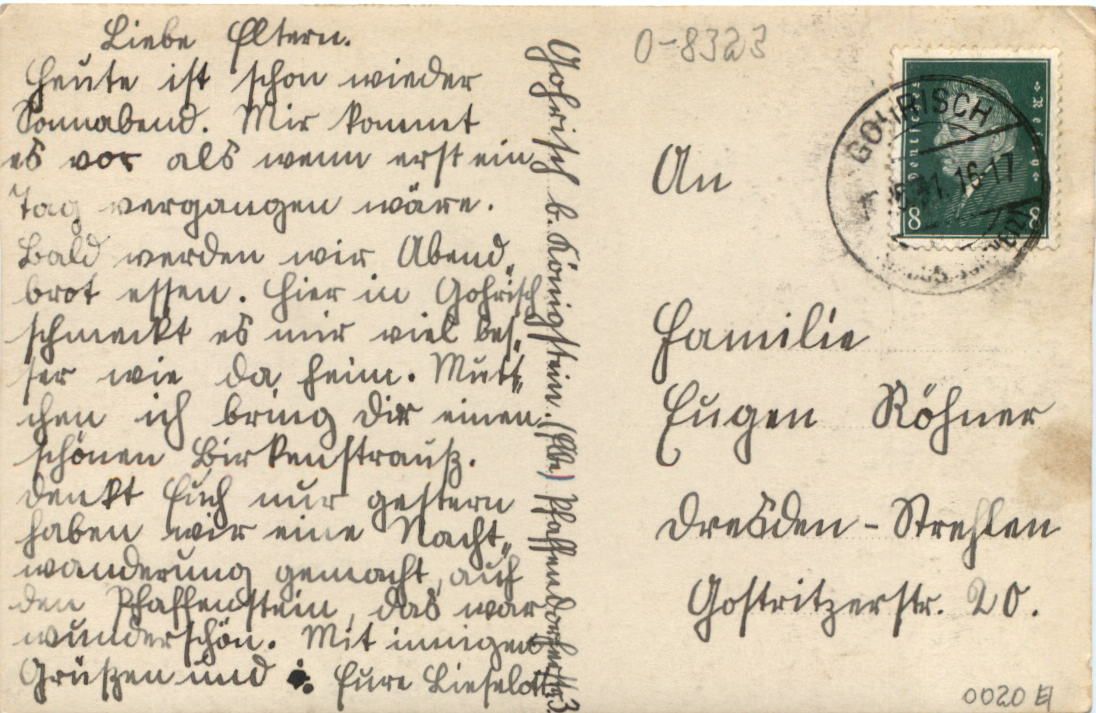 Liebe Eltern.
Heute ist schon wieder
Sonnabend. Mir kommt
es vor als wenn erst ein
Tag vergangen wäre.
Bald werden wir Abend„
brot essen. Hier in Gohrisch
schmeckt es mir viel bes„
ser wie da heim. Mutt„
chen ich bring Dir einen
schönen Birkenstrauß.
Denkt Euch nur gestern
haben wir eine Nacht„
wanderung gemacht, auf
den Pfaffendstein, das war
wunderschön. Mit innigen
Grüßen und
Eure Lieselott
Gohrisch b. Königstein. (Elbe) Pfaffendorferstr. 3.
0-8323
GOHRISCH
31. 16-17
Deutsches Reich
8 8
An
Familie
Eugen Röhner
Dresden - Strehlen
Gostritzerstr. 20.
0020